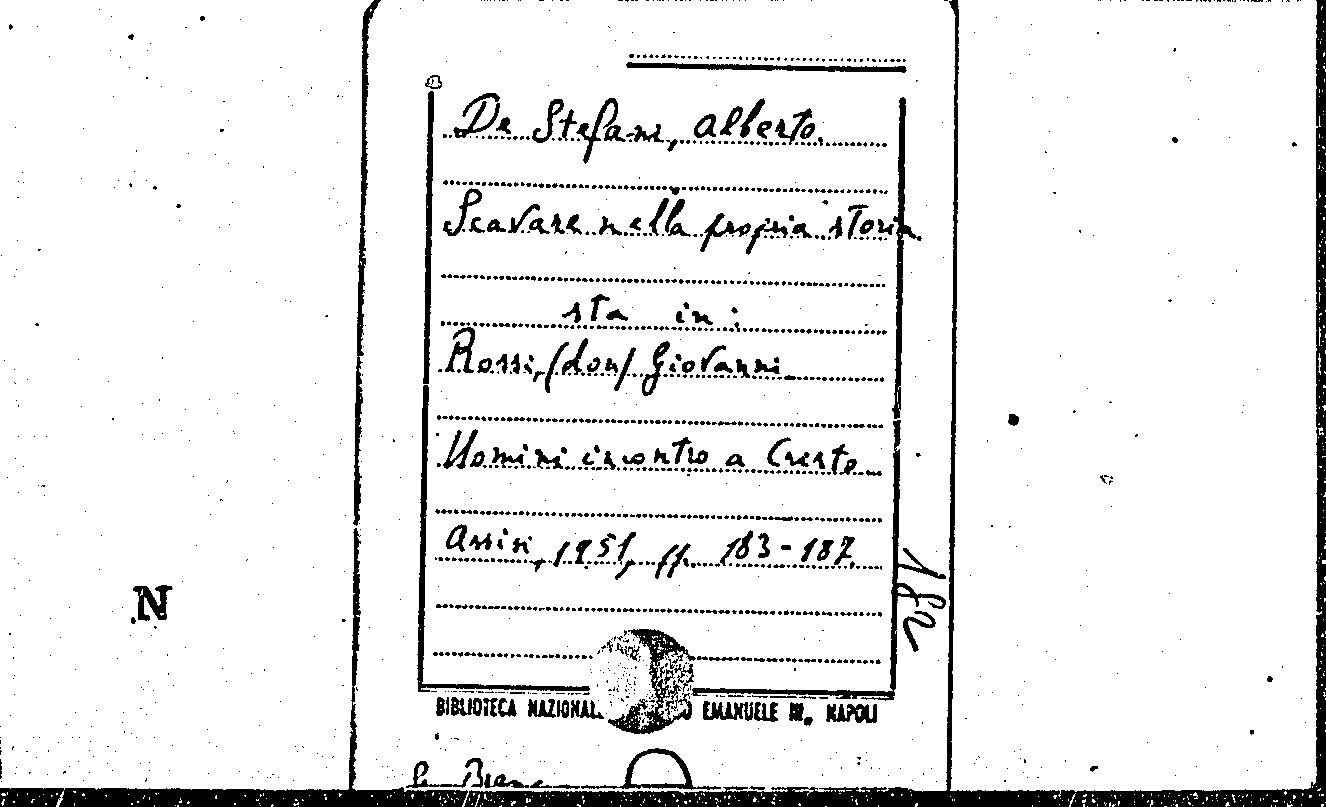 De Stefani, Alberto.
Scavare nella propria storia.
sta in:
Rossi, (don) Giovanni.
Uomini incontro a Cristo.
Assisi, 1951, pp. 183-187.
182
BIBLIOTECA NAZIONAL EMANUELE III, NAPOLI
N